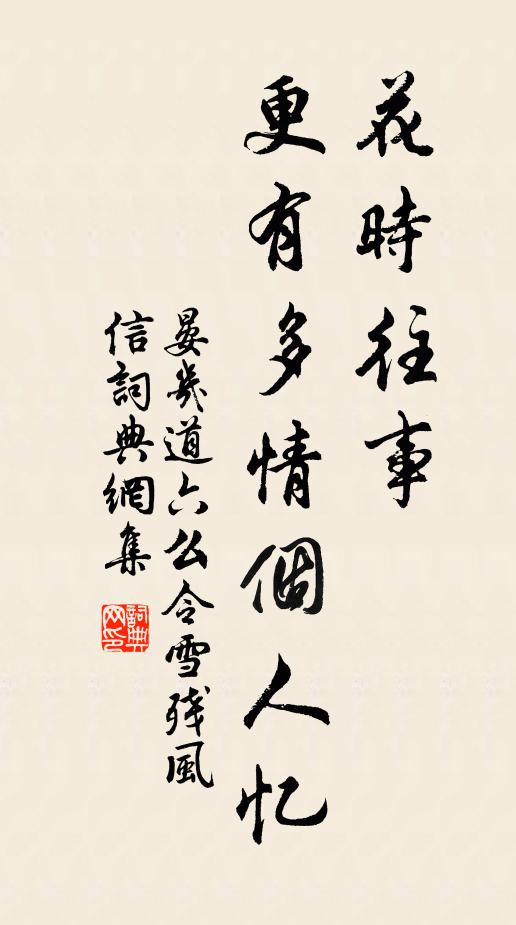 花時往事
更有多情個人忆
晏幾道六么令雪残風
信詞典網集
詞典
网印